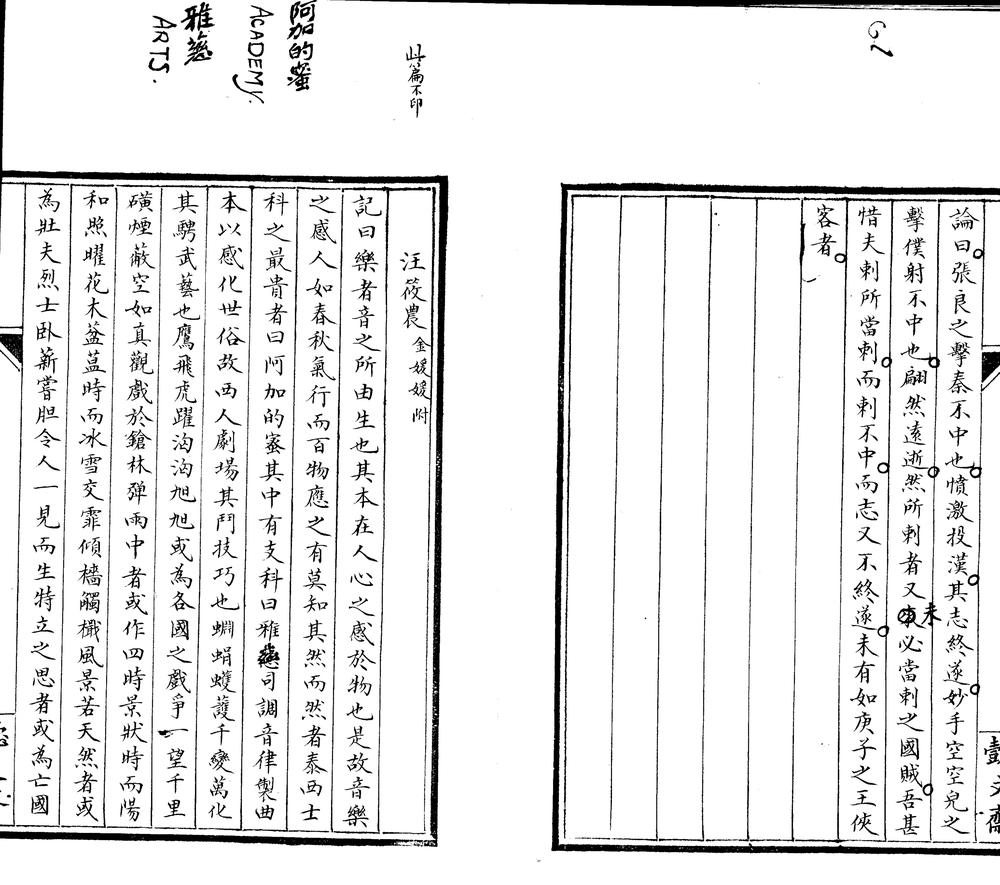 論曰張良之擊秦不中也憤激投漢其志終遂妙手空空兒之
擊僕射不中也翩然遠逝然所刺者又未必當刺之國賊吾甚
惜夫刺所當刺而刺不中而志又不終遂未有如庚子之王俠
客者
此篇不印
汪筱農 金媛媛附
記曰樂者音之所由生也其本在人心之感於物也是故音樂
之感人如春秋氣行而百物應之有莫知其然而然者泰西士
科之最貴者曰阿加的蜜其中有支科曰雅藝司調音律製曲
本以感化世俗故西人劇場其鬥技巧也蝴蜎蠖護千變萬化
其騁武藝也鷹飛虎躍洶洶旭旭或為各國之戲爭一望千里
磺煙蔽空如真觀戲於鎗林彈雨中者或作四時景狀時而陽
和照曜花木葢藍時而冰雪交霏傾檣觸檝風景若天然者或
為壯夫烈士臥薪嘗胆令人一見而生特立之思者或為亡國
阿加的蜜
ACADEMY.
雅藝
ARTS.